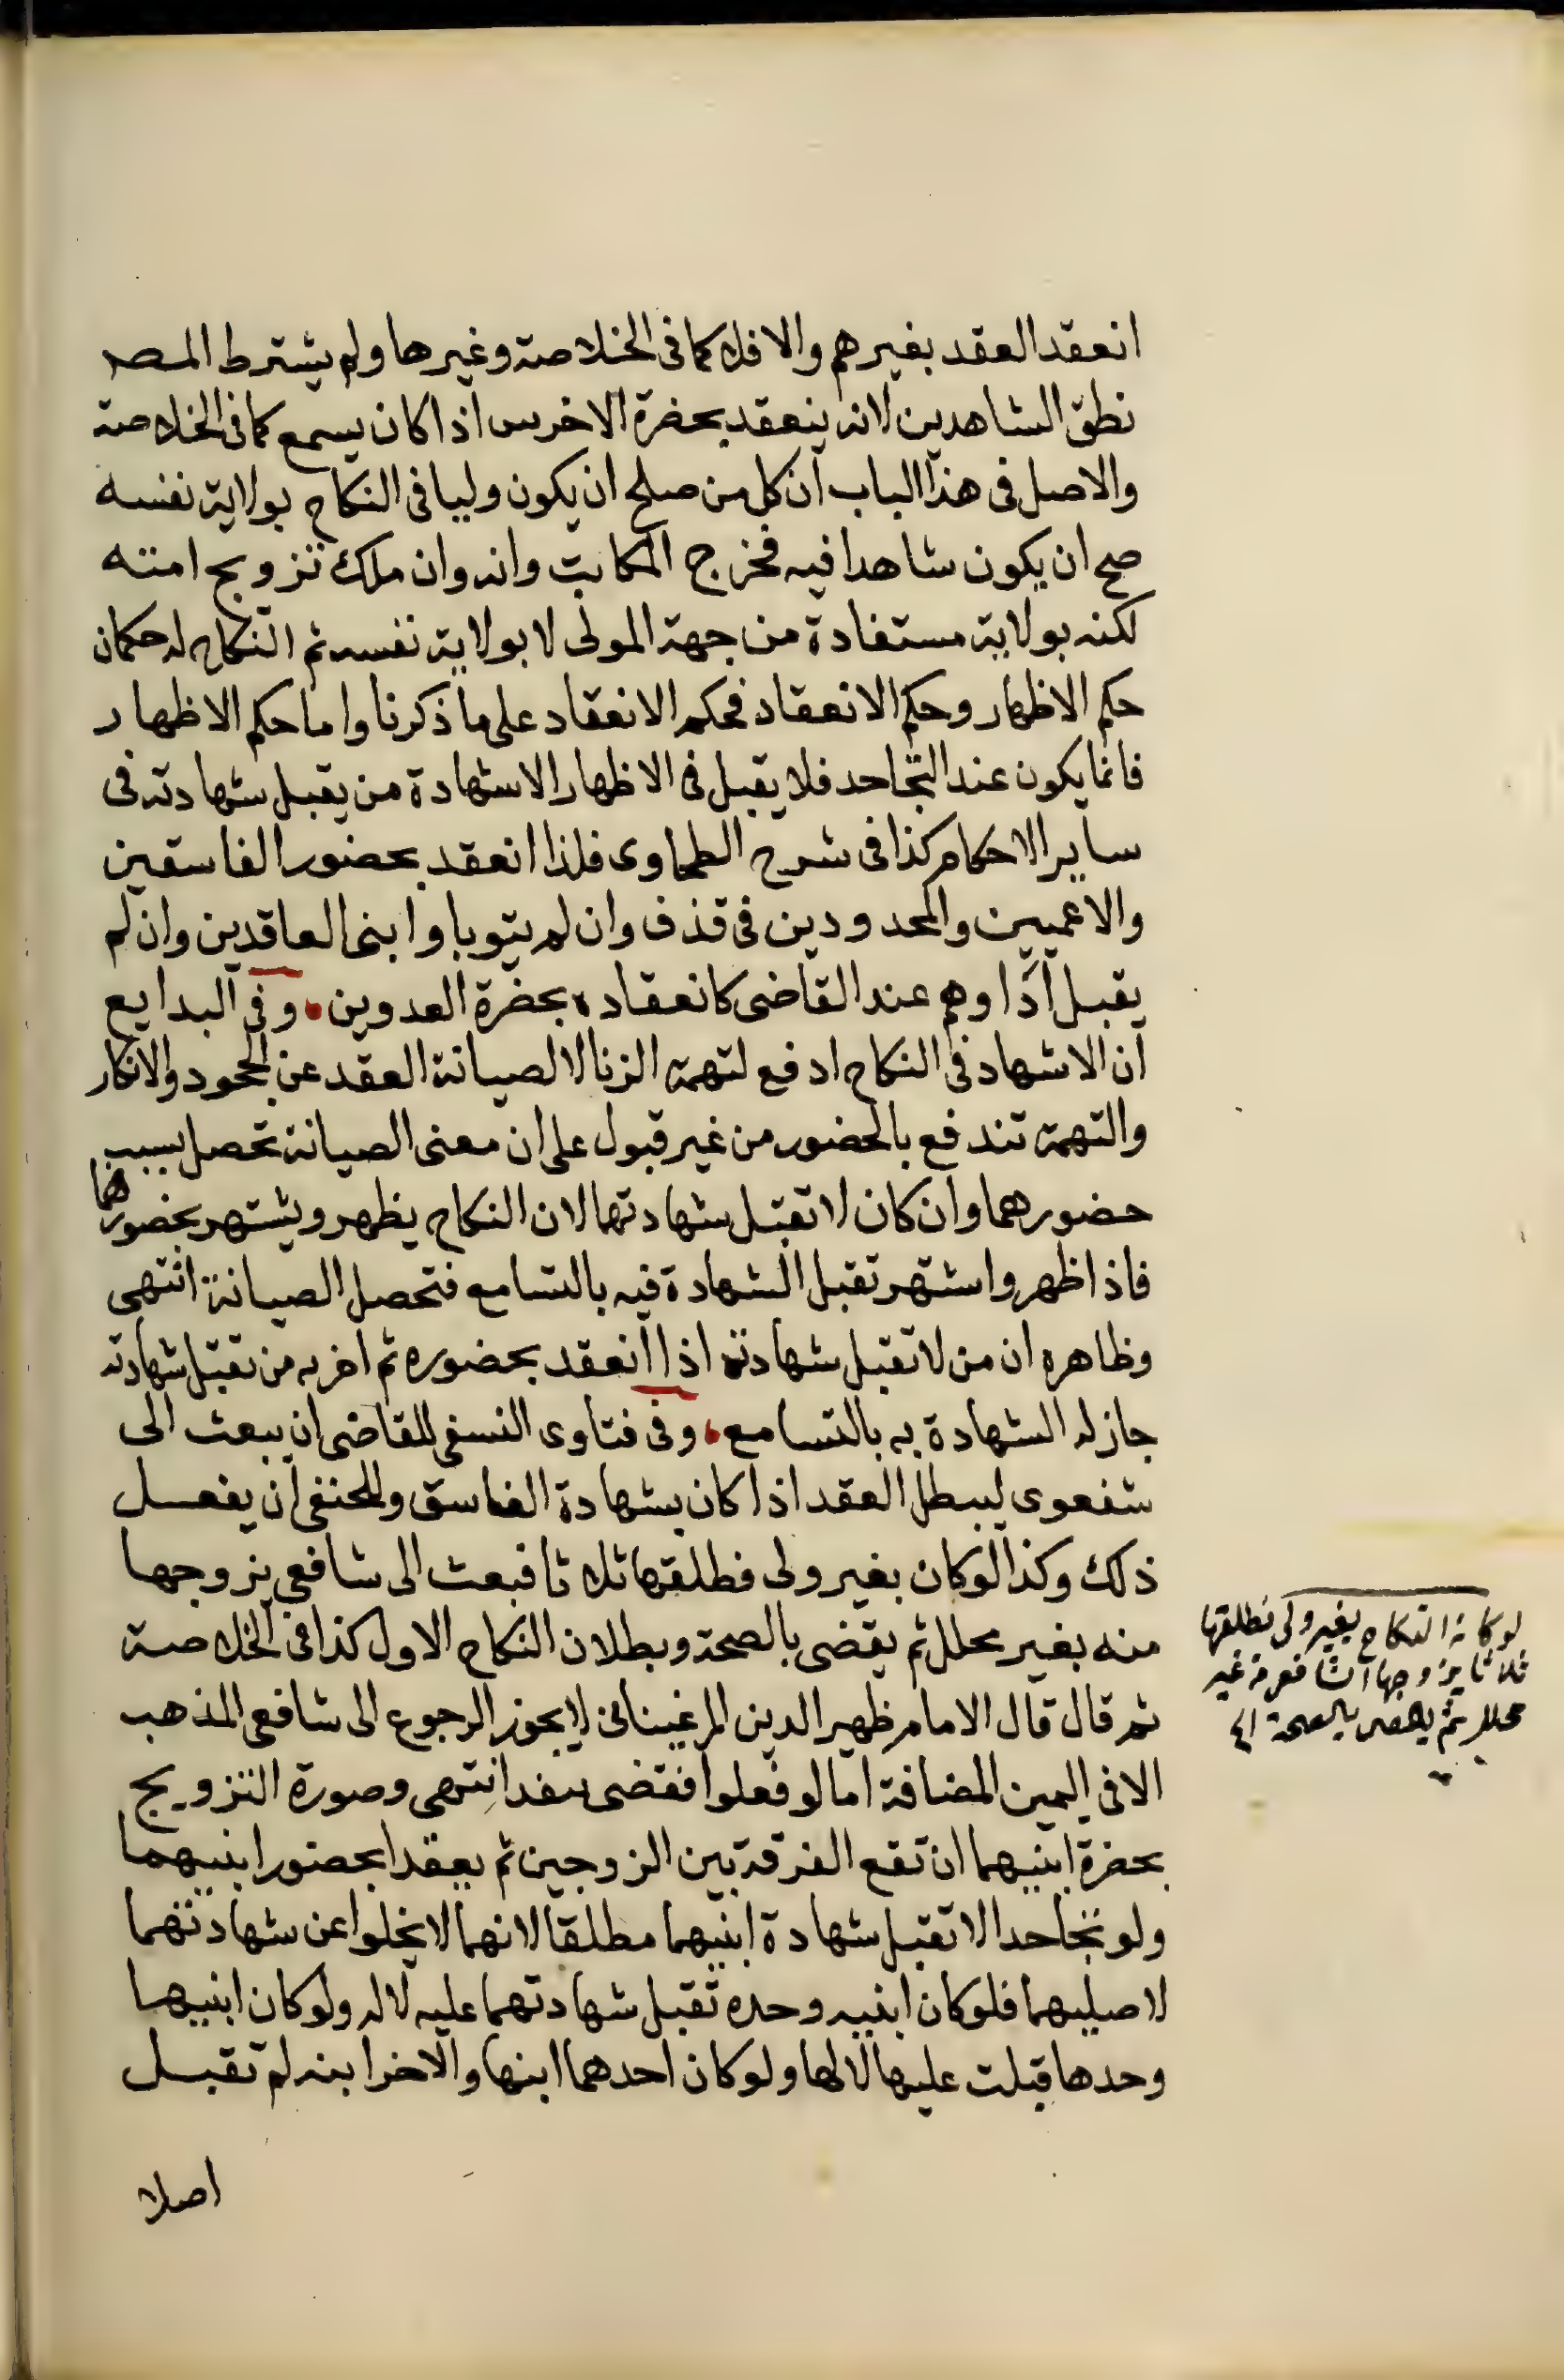 انعقد العقد بغيرهم والا فلا كما فى الخلاصة وغيرها ولم يشترط المصـ
نطق الشاهدين لانه ينعقد بحضرة الاخرس اذا كان يسمع كما فى الخلاصة
والاصل فى هذا الباب ان كل من صلح ان يكون وليا فى النكاح بولاية نفسه
صح ان يكون شاهدا فيه فخرج المكاتب وانه وان ملك تزويج امته
لكنه بولاية مستفادة من جهة المولى لا بولاية نفسه ثم النكاح له حكمان
حكم الاظهار وحكم الانعقاد فحكم الانعقاد على ما ذكرنا واما حكم الاظهار
فانما يكون عند التجاحد فلا يقبل فى الاظهار الا شهادة من يقبل شهادته فى
ساير الاحكام كذا فى شرح الطحاوى فلذا انعقد بحضور الفاسقين
والاعميين والمحدودين فى قذف وان لم يتوبا وابنى العاقدين وان لم
يقبل اداوهم عند القاضى كانعقاده بحضرة العدوين وفى البدايع
ان الاشهاد فى النكاح ادفع لتهمة الزنا لا لصيانة العقد عن الجحود والانكار
والتهمة تندفع بالحضور من غير قبول على ان معنى الصيانة تحصل بسبب
حضورهما وان كان لا تقبل شهادتهما لان النكاح يظهر ويشتهر بحضورهما
فاذا ظهر واشتهر تقبل الشهادة فيه بالتسامع فتحصل الصيانة انتهى
وظاهره ان من لا تقبل شهادته اذا انعقد بحضوره ثم اخر به من تقبل شهادته
جاز له الشهادة به بالتسامع وفى فتاوى النسفى للقاضى ان يبعث الى
شفعوى ليبطل العقد اذا كان بشهادة الفاسق وللحنفى ان يفعل
ذلك وكذا لو كان بغير ولى فطلقها ثلاثا فبعث الى شافعى يزوجها
منه بغير محلل ثم يقضى بالصحة وبطلان النكاح الاول كذا فى الخلاصة
ثم قال قال الامام ظهير الدين المرغينانى لا يجوز الرجوع الى شافعى المذهب
الا فى اليمين المضافة اما لو فعلوا فقضى ينفد انتهى وصورة التزويج
بحضرة ابنيهما ان تقع الفرقة بين الزوجين ثم يعقدا بحضور ابنيهما
ولو تجاحدا لا تقبل شهادة ابنيهما مطلقا لانهما لا يخلوا عن شهادتهما
لاصليهما فلو كان ابنيه وحده تقبل شهادتهما عليه لا له ولو كان ابنيها
وحدها قبلت عليها لا لها ولو كان احدهما ابنها والاخر ابنه لم تقبل
اصلا
لو كان النكاح بغير ولى فطلقها
ثلاثا يزوجها الشافعى من غير
محلل ثم يقضى بالصحة